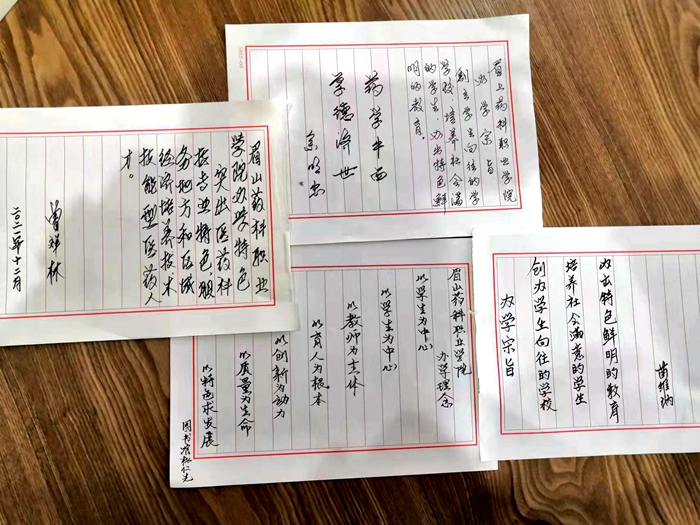 眉山药科职业学院
办学宗旨
创立学生向往的学
学校、培养社会满
的学生、办出特色鲜
明的教育。
药学
厚德济世
眉山药科职业
学院办学特色
突出医药科
技专业特色,服
务地方和区域
经济培养技术
技能型医药人
才。
曾祥林
二〇二一年十二月
眉山药科职业学院
办学理念
以学生为中心
以学生为中心
以教师为主体
以育人为根本
以创新为动力
以质量为生命
以特色求发展
图书馆
办学宗旨
创办学生向往的学校
培养社会满意的学生
办出特色鲜明的教育
苗维纳